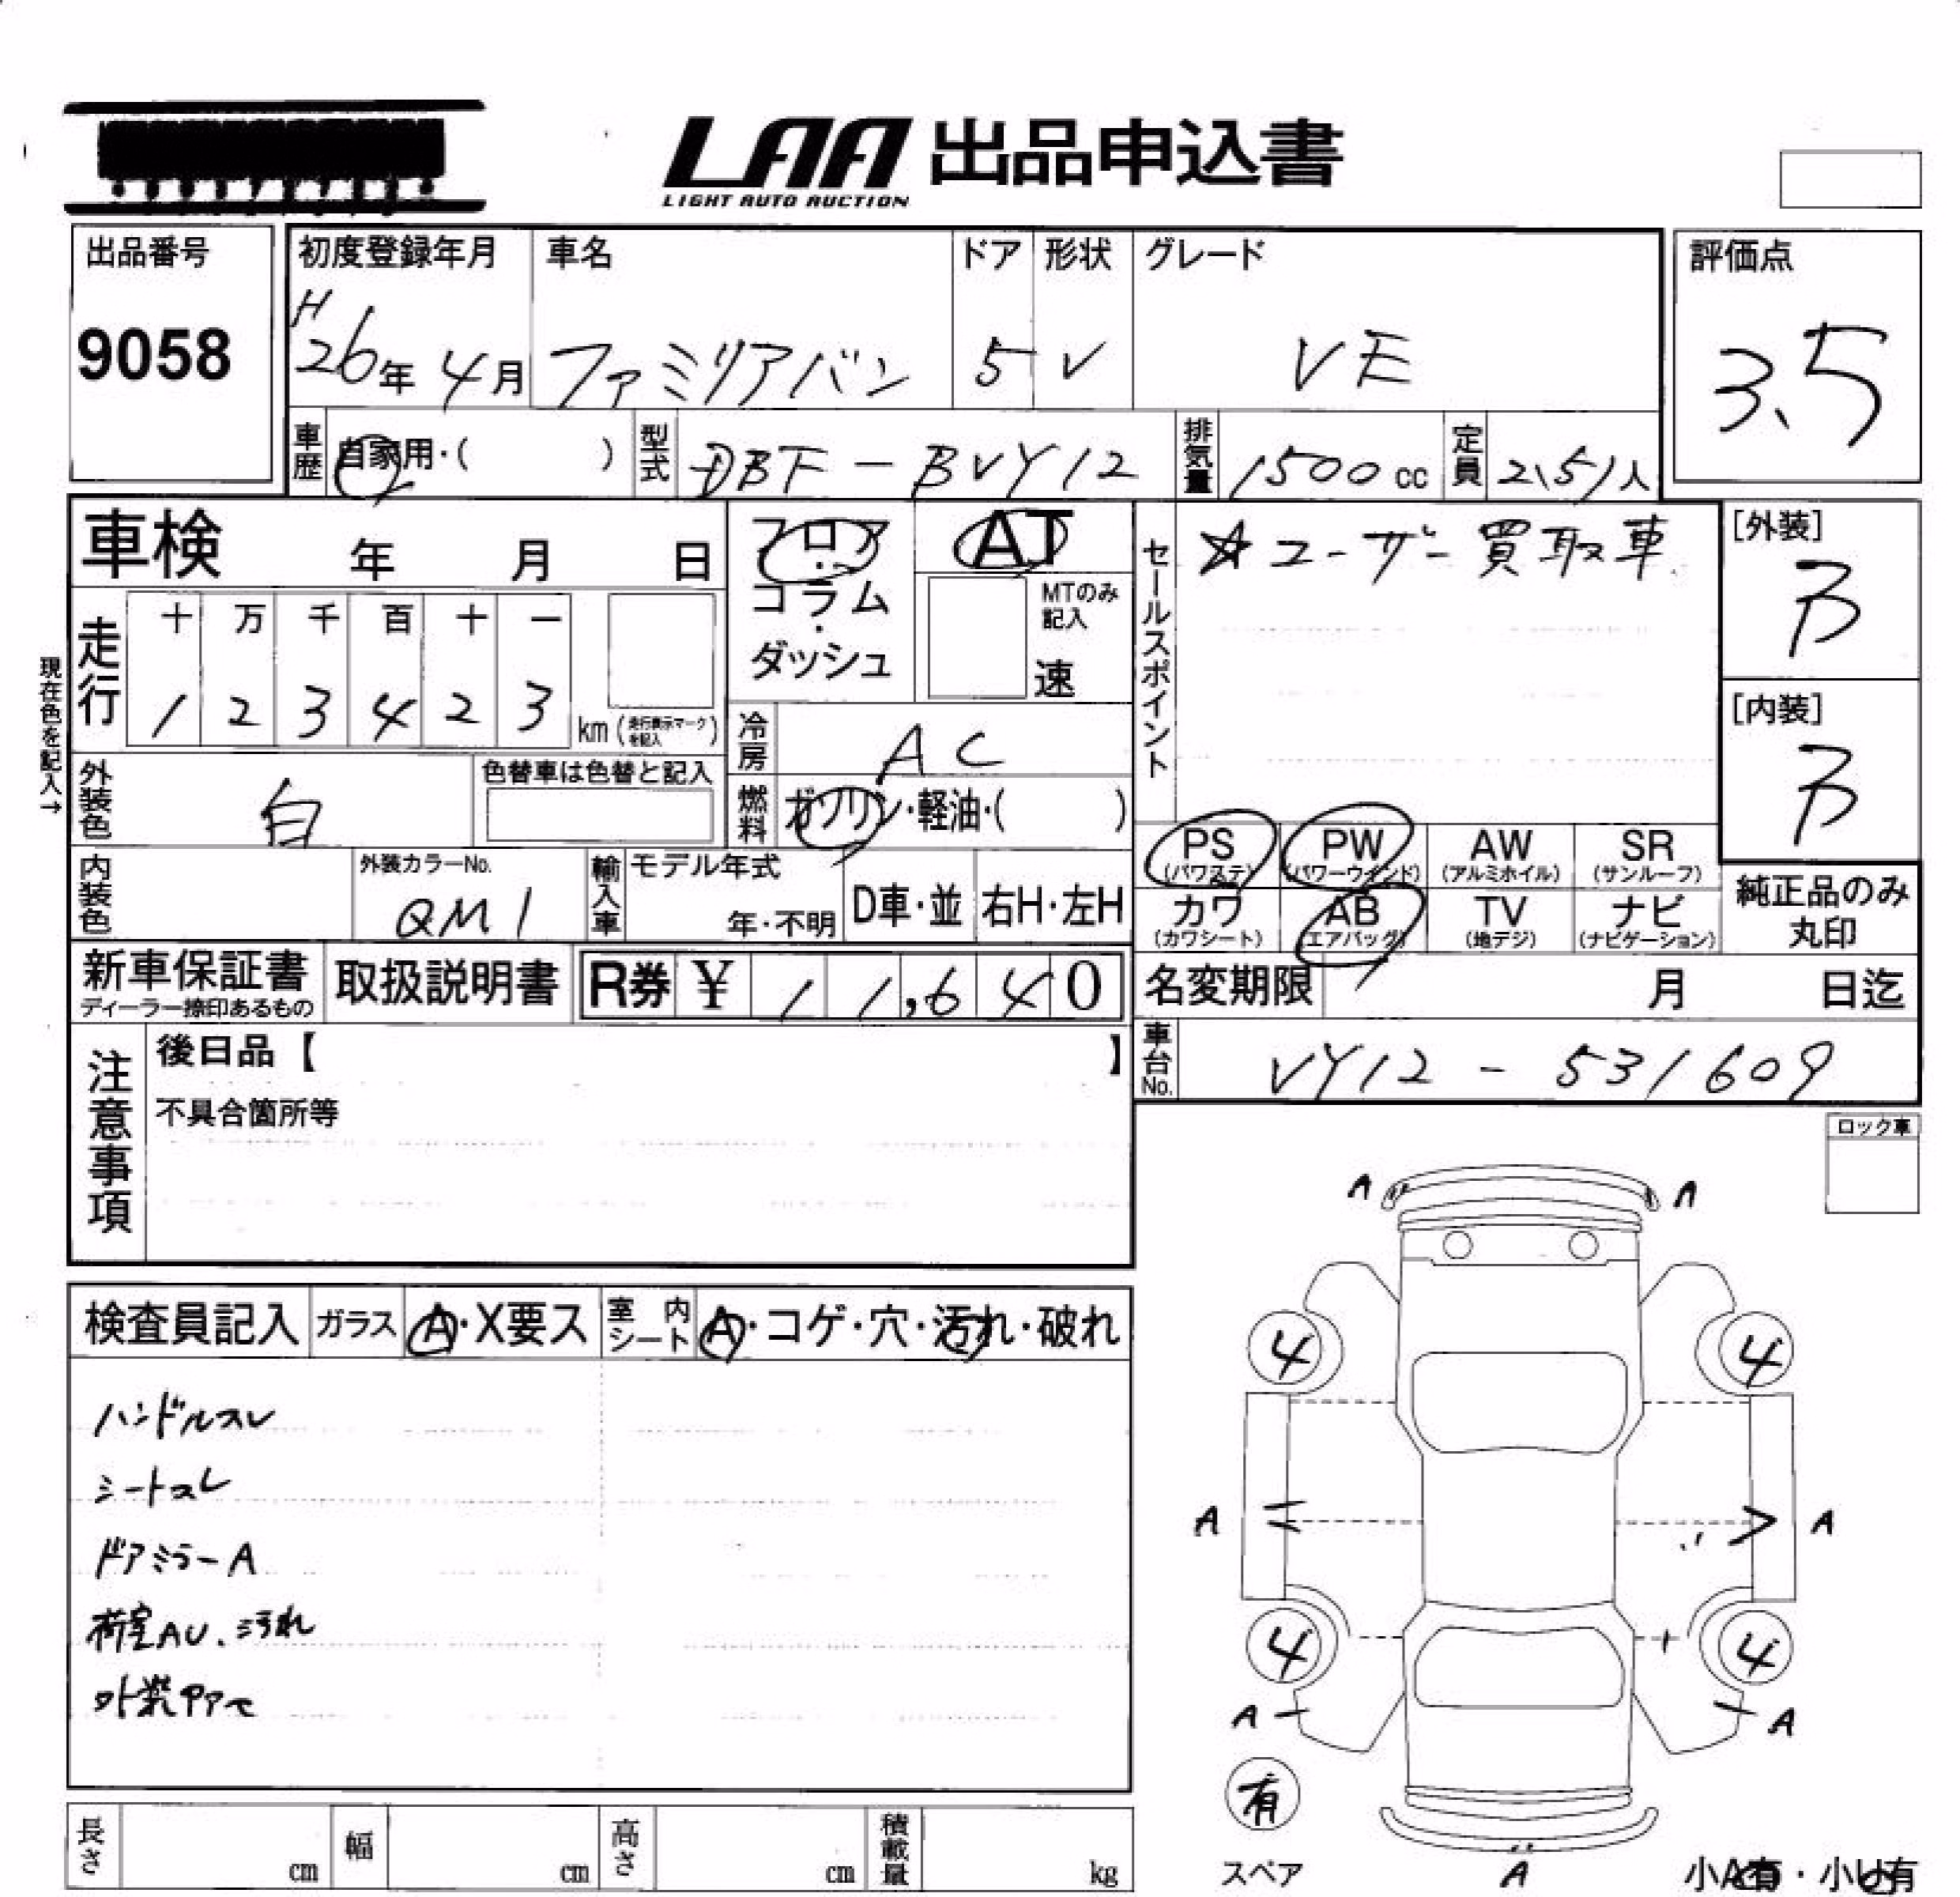 LAA 出品申込書
LIGHT AUTO AUCTION
出品番号
9058
初度登録年月
H26年 4月
車名
ファミリアバン
ドア
5
形状
V
グレード
VE
評価点
3.5
車歴 自家用・( )
型式 DBF-BVY12
排気量 1500cc
定員 2(5)人
車検 年 月 日
フロア・コラム・ダッシュ
AT
MTのみ記入
速
セールスポイント
☆ユーザー買取車
[外装]
B
[内装]
B
現在色を記入→
走行
十 万 千 百 十 一
1 2 3 4 2 3 km (走行表示マークを記入)
冷房 AC
外装色 白
色替車は色替と記入
燃料 ガソリン・軽油・( )
PS (パワステ)
PW (パワーウインド)
AW (アルミホイル)
SR (サンルーフ)
カワ (カワシート)
AB (エアバッグ)
TV (地デジ)
ナビ (ナビゲーション)
純正品のみ丸印
内装色
外装カラーNo.
QM1
輸入車
モデル年式
年・不明
D車・並
右H・左H
新車保証書
ディーラー捺印あるもの
取扱説明書
R券 ¥ 11,640
名変期限 月 日迄
車台No. VY12-531609
注意事項
後日品【 】
不具合箇所等
ロック車
検査員記入
ガラス A・X要ス
室内シート A・コゲ・穴・汚れ・破れ
ハンドルスレ
シートスレ
ドアミラーA
荷室AU、汚れ
A A
4 4
A A
4 4
A A
有
スペア
A
小A有・小U有
長さ cm
幅 cm
高さ cm
積載量 kg